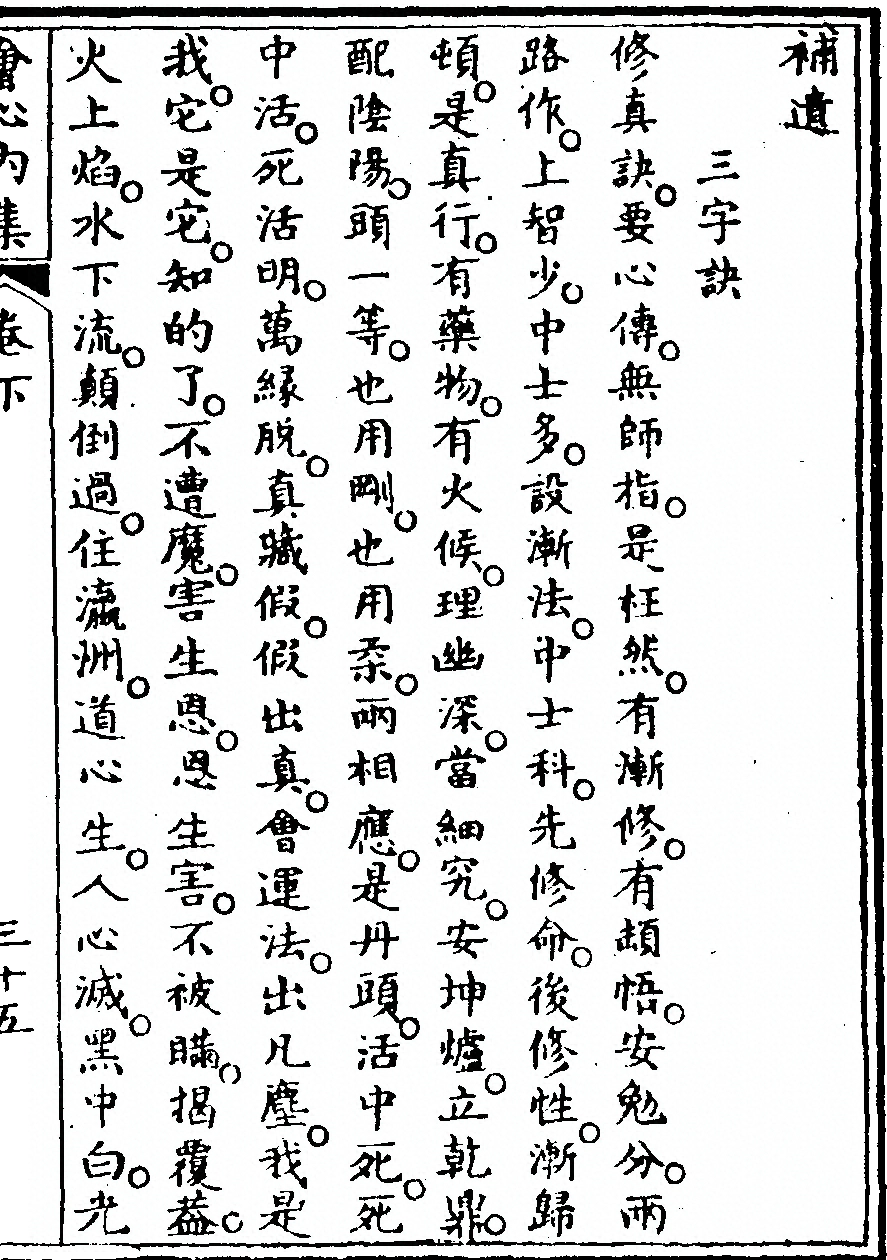 補遺
三字訣
修真訣。要心傳。無師指。是枉然。有漸修。有頓悟。安勉分。兩
路作。上智少。中士多。設漸法。中士科。先修命。後修性。漸歸
頓。是真行。有藥物。有火候。理幽深。當細究。安坤爐。立乾鼎。
配陰陽。頭一等。也用剛。也用柔。兩相應。是丹頭。活中死。死
中活。死活明。萬緣脫。真藏假。假出真。會運法。出凡塵。我是
我。它是它。知的了。不遭魔。害生恩。恩生害。不被瞞。揭覆蓋。
火上焰。水下流。顛倒過。住瀛洲。道心生。人心滅。黑中白。光
會心內集
卷下
三十五